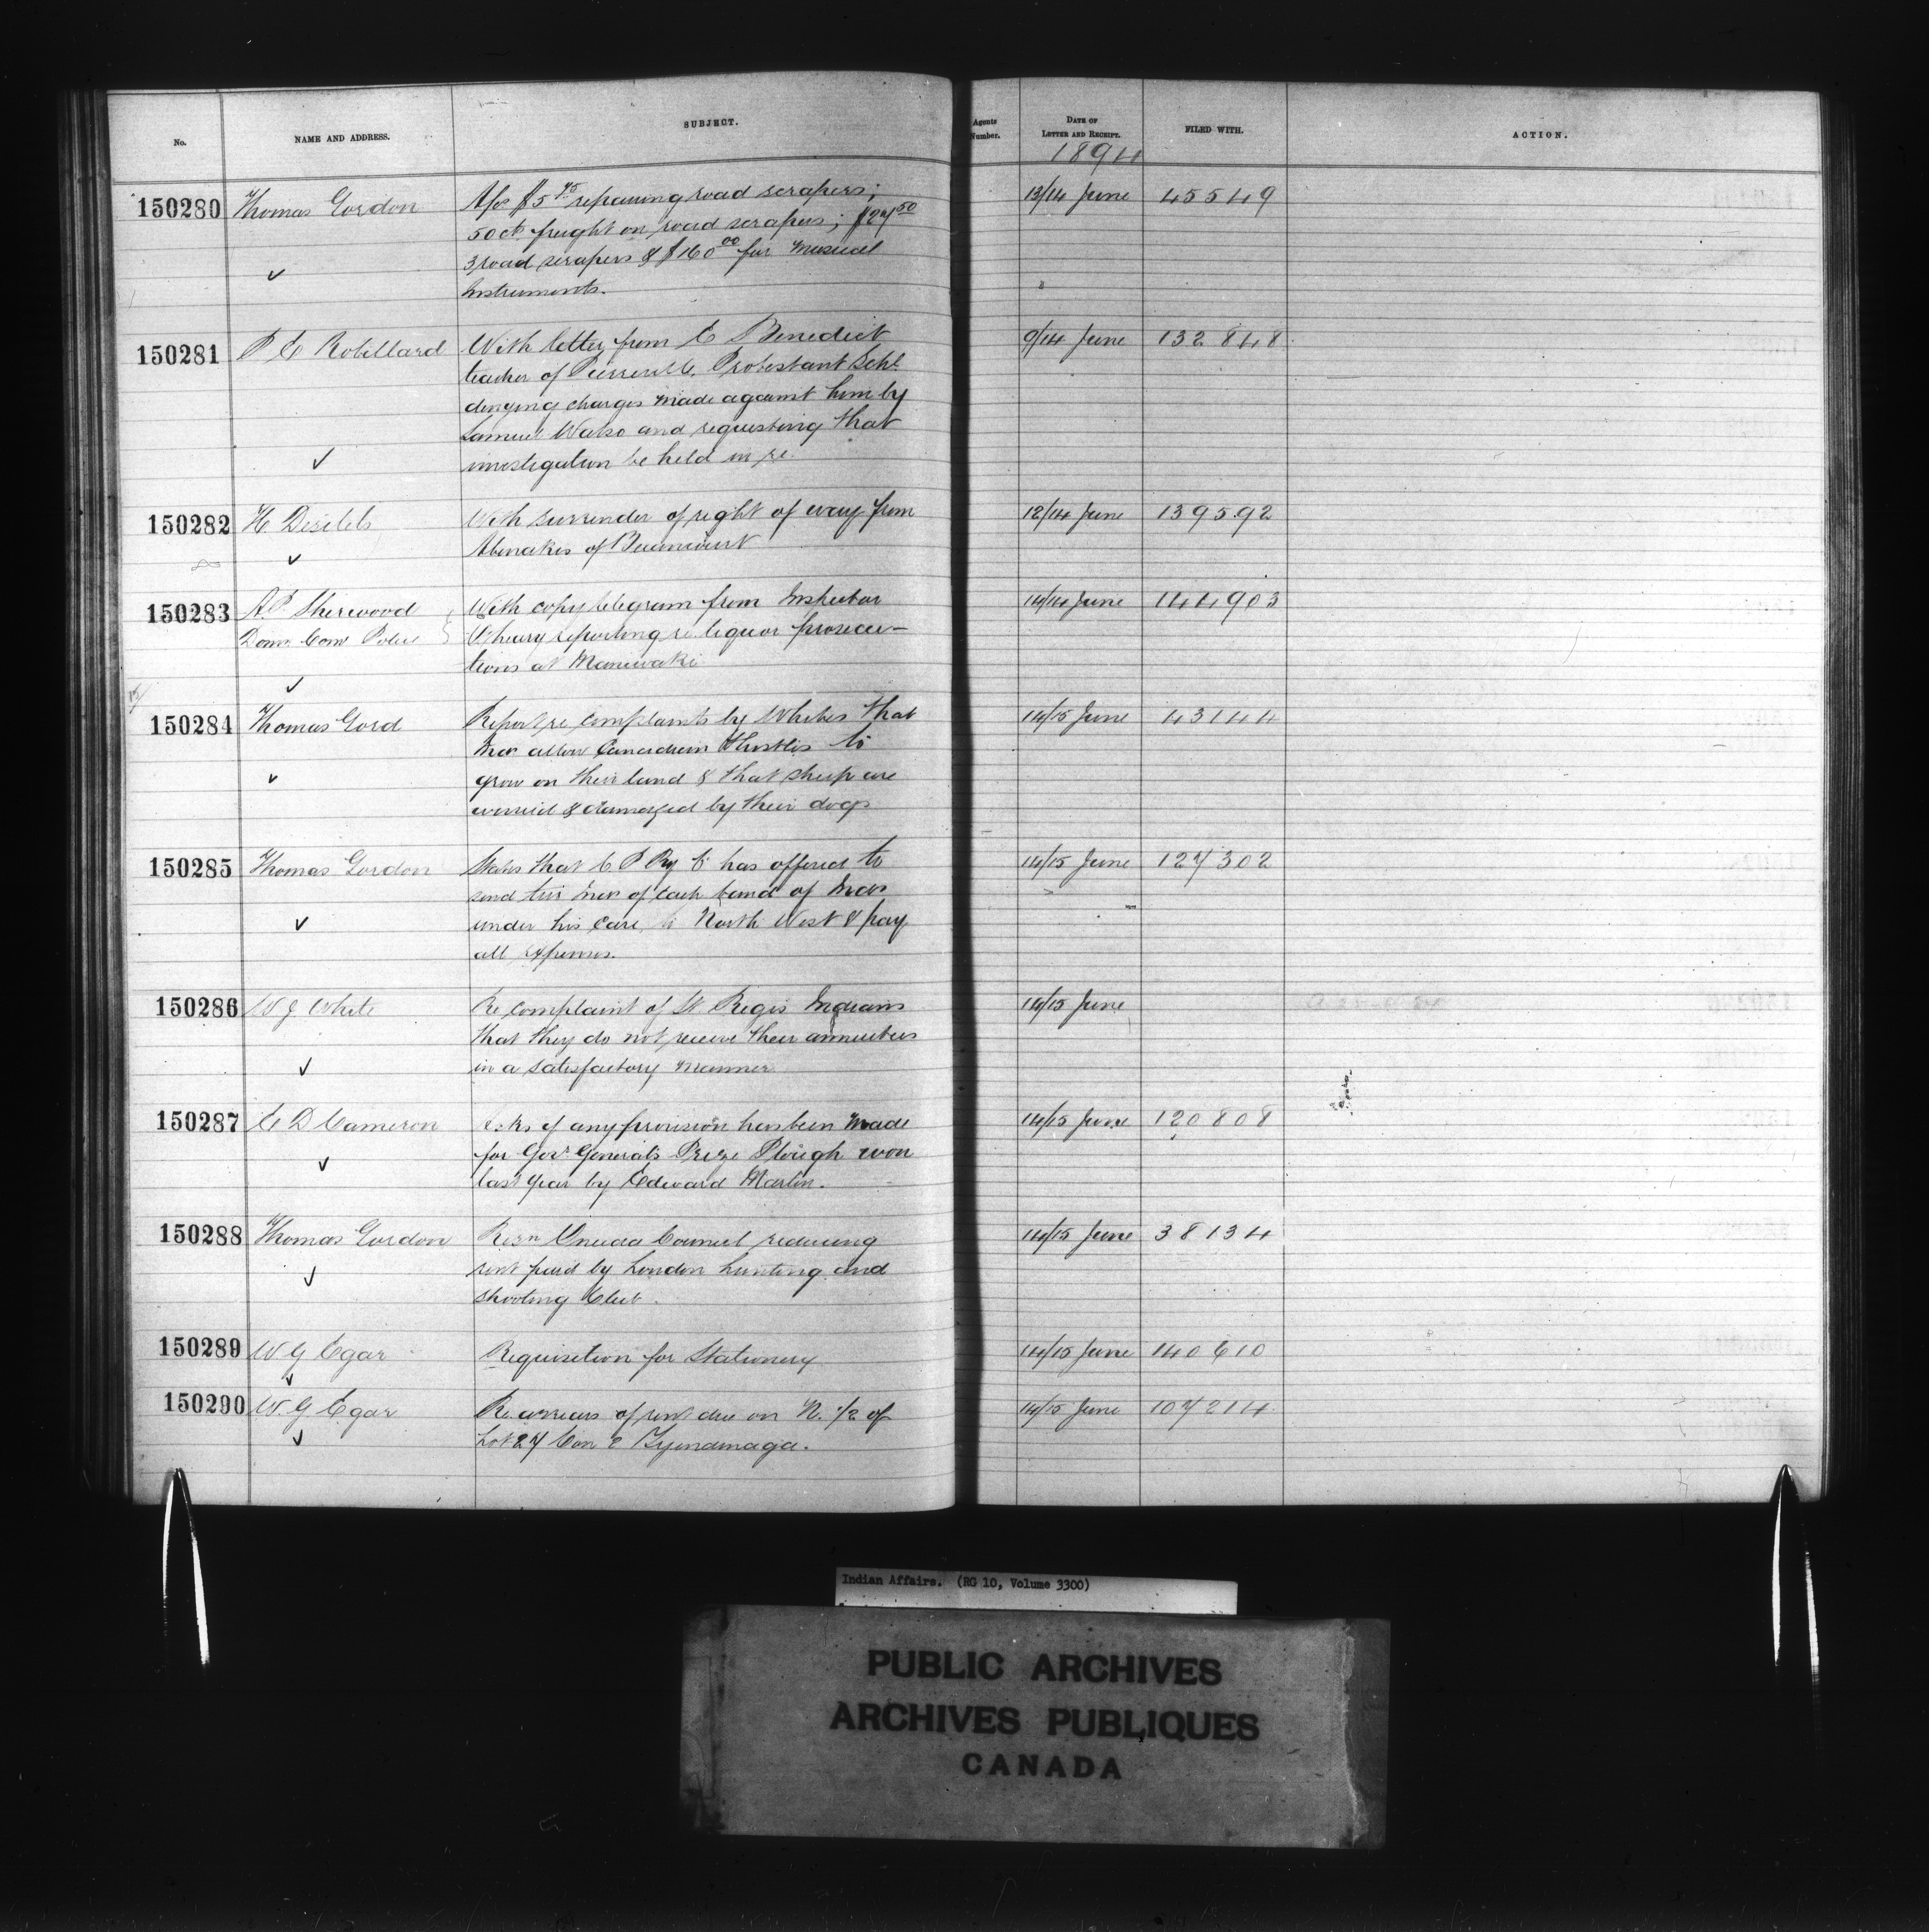 No. NAME AND ADDRESS. SUBJECT. Agents Number. DATE OF LETTER AND RECEIPT. FILED WITH. ACTION.
1894
150280 Thomas Gordon A/cs $5 45 repairing road scrapers; 13/14 June 45549
50 cts freight on road scrapers; $27 50
3 road scrapers & $160 00 for musical
Instruments.
150281 P E Robillard With letter from E Benedict 9/14 June 132848
teacher of Pierreville Protestant Schl
denying charges made against him by
Samuel Watso and requesting that
investigation be held in re.
150282 H Desilets With surrender of right of way from 12/14 June 139592
Abenakis of Becancourt
150283 A.P. Sherwood With copy telegram from Inspector 14/14 June 144903
Dom. Com Police reporting re liquor prosecu-
tions at Maniwaki
150284 Thomas Gord Report re complaints by Whites that 14/15 June 43144
Inds allow Canadian thistles to
grow on their land & that sheep are
worried & damaged by their dogs
150285 Thomas Gordon States that C P Ry Co has offered to 14/15 June 127302
send two Inds of each band of Inds
under his care to North West & pay
all expenses.
150286 W J White Re complaint of St Regis Indians 14/15 June
that they do not receive their annuities
in a satisfactory manner
150287 E D Cameron Asks if any provision has been made 14/15 June 120808
for Govr General's Prize Plough won
last year by Edward Martin.
150288 Thomas Gordon Resn Oneida Council reducing 14/15 June 38134
rent paid by London Hunting and
Shooting Club.
150289 W G Egar Requisition for Stationery 14/15 June 140610
150290 W. G Egar Re arrears of rent due on N. 1/2 of 14/15 June 107214
Lot 27 Con 2 Tyendinaga.
Indian Affairs. (RG 10, Volume 3300)
PUBLIC ARCHIVES
ARCHIVES PUBLIQUES
CANADA